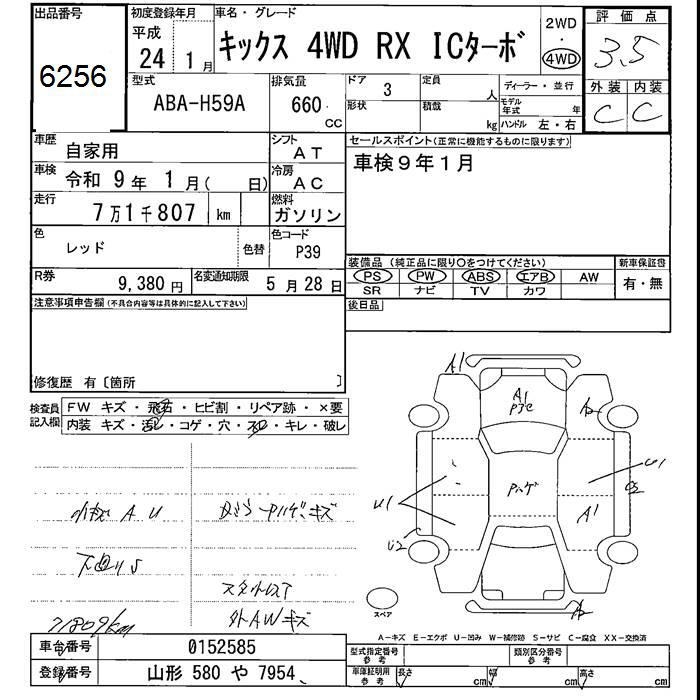 出品番号
6256
初度登録年月
平成
24 1月
車名・グレード
キックス 4WD RX ICターボ
2WD
・
4WD
評価点
3.5
型式
ABA-H59A
排気量
660
CC
ドア
3
形状
定員
人
積載
kg
ディーラー・並行
モデル年式 年
ハンドル 左・右
外装 内装
C C
車歴
自家用
シフト
AT
車検
令和 9年 1月( 日)
冷房
AC
走行
7万1千807 km
燃料
ガソリン
色
レッド
色替
色コード
P39
R券
9,380円
名変通知期限
5月28日
セールスポイント(正常に機能するものに限ります)
車検9年1月
装備品 (純正品に限り○をつけてください)
PS PW ABS エアB AW
SR ナビ TV カワ
新車保証書
有・無
後日品
注意事項申告欄(不具合内容等は具体的に記入して下さい)
修復歴 有〔箇所 〕
検査員記入欄
FW キズ・飛石・ヒビ割・リペア跡・×要
内装 キズ・汚レ・コゲ・穴・スレ・キレ・破レ
小キズ A U
下廻りS
スタットレスT
外AWキズ
71807km
A1
A1
A2
U1
U2
A1
U1
A2
スペア
A－キズ E－エクボ U－凹み W－補修跡 S－サビ C－腐食 XX－交換済
車台番号
0152585
登録番号
山形 580 や 7954
型式指定番号
参考
類別区分番号
参考
車庫証明用
参考
長さ cm
幅 cm
高さ cm